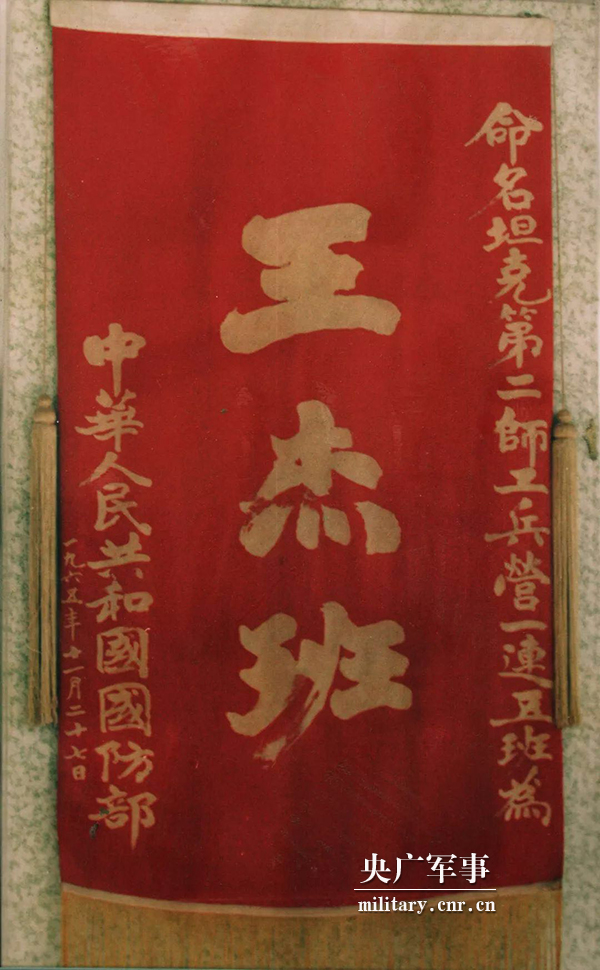 命名坦克第二師工兵營一連五班為
王杰班
中華人民共和國國防部
一九六五年十一月二十七日
央广军事
military.cnr.cn